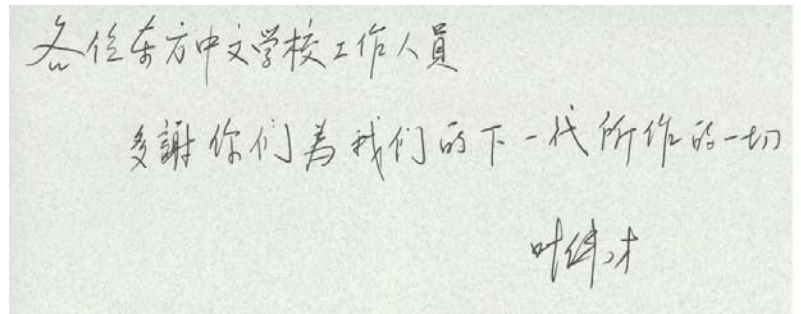 各位东方中文学校工作人員
多謝你们为我们的下一代所作的一切
叶伟才